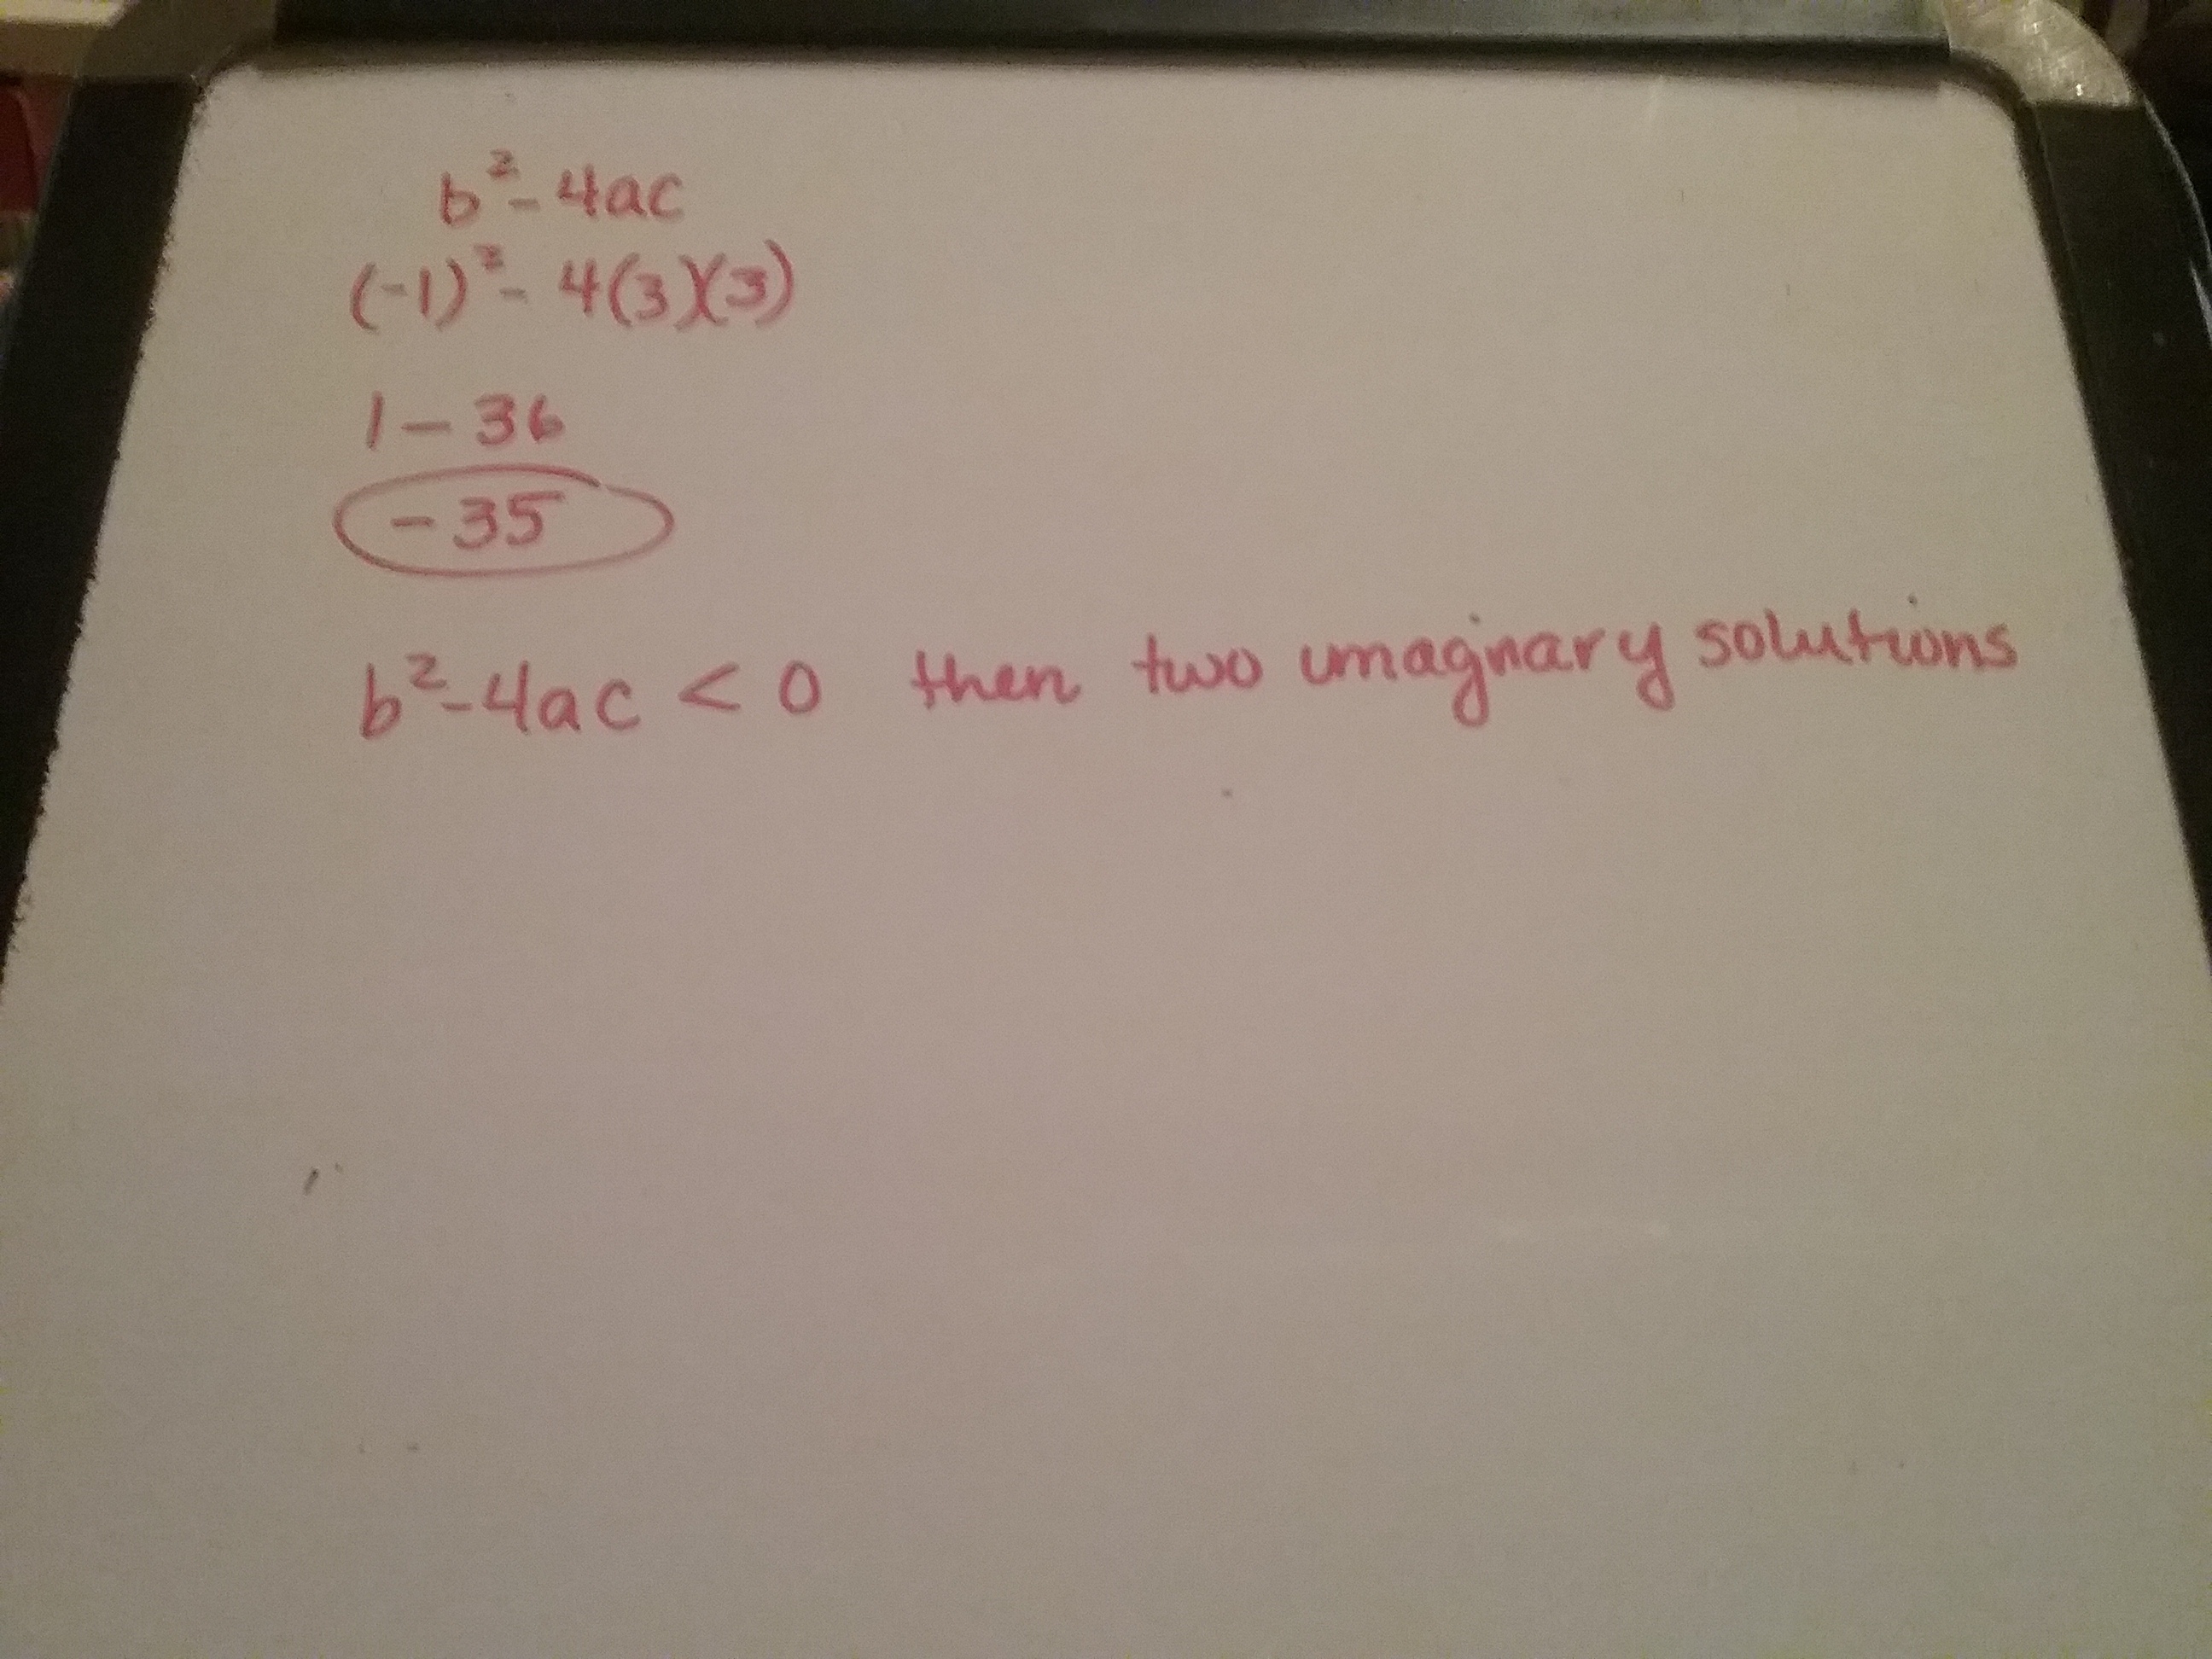 b² - 4ac
(-1)² - 4(3)(3)
1 - 36
-35
b² - 4ac < 0 then two imagnary solutions